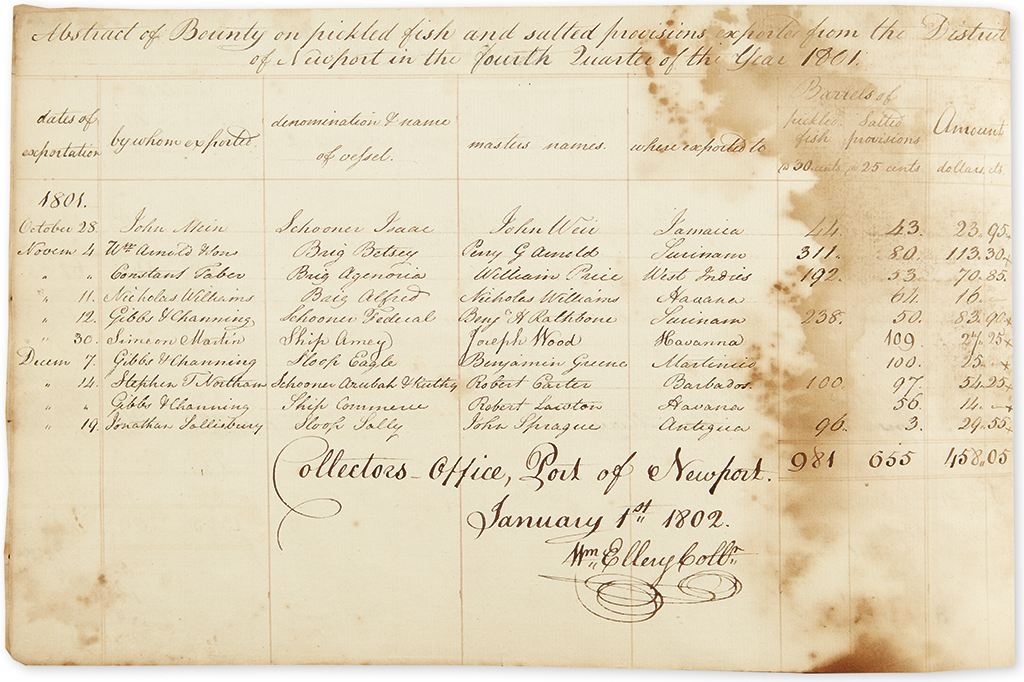 Abstract of Bounty on pickled fish and salted provisions exported from the District
of Newport in the fourth Quarter of the Year 1801.
dates of exportation by whom exported. denomination & name of vessel. masters names. where exported to Barrels of pickled fish @ 30 cents Salted provisions @ 25 cents Amount dollars. cts.
1801.
October 28. John Mein Schooner Isaac John Weir Jamaica 44. 43. 23.95
Novem 4 Wm Arnold & sons Brig Betsey Perry G Arnold Surinam 311. 80. 113.30
" " Constant Taber Brig Agenoria William Price West Indies 192. 53. 70.85.
" 11. Nicholas Williams Brig Alfred Nicholas Williams Havana 64. 16. –
" 12. Gibbs & Channing Schooner Federal Benj. H Rathbone Surinam 238. 50. 83.90
" 30. Simeon Martin Ship Amey Joseph Wood Havanna 109. 27.25
Decem 7. Gibbs & Channing Sloop Eagle Benjamin Greene Martinico 100. 25. –
" 14. Stephen T. Northam Schooner Azubah & Ruthy Robert Carter Barbados. 100. 97. 54.25
" " Gibbs & Channing Ship Commerce Robert Lawton Havana 56. 14. –
" 19. Jonathan Sallisbury Sloop Sally John Sprague Antigua 96. 3. 29.55
981 655 458.05
Collectors-Office, Port of Newport.
January 1st 1802.
Wm Ellery Collr